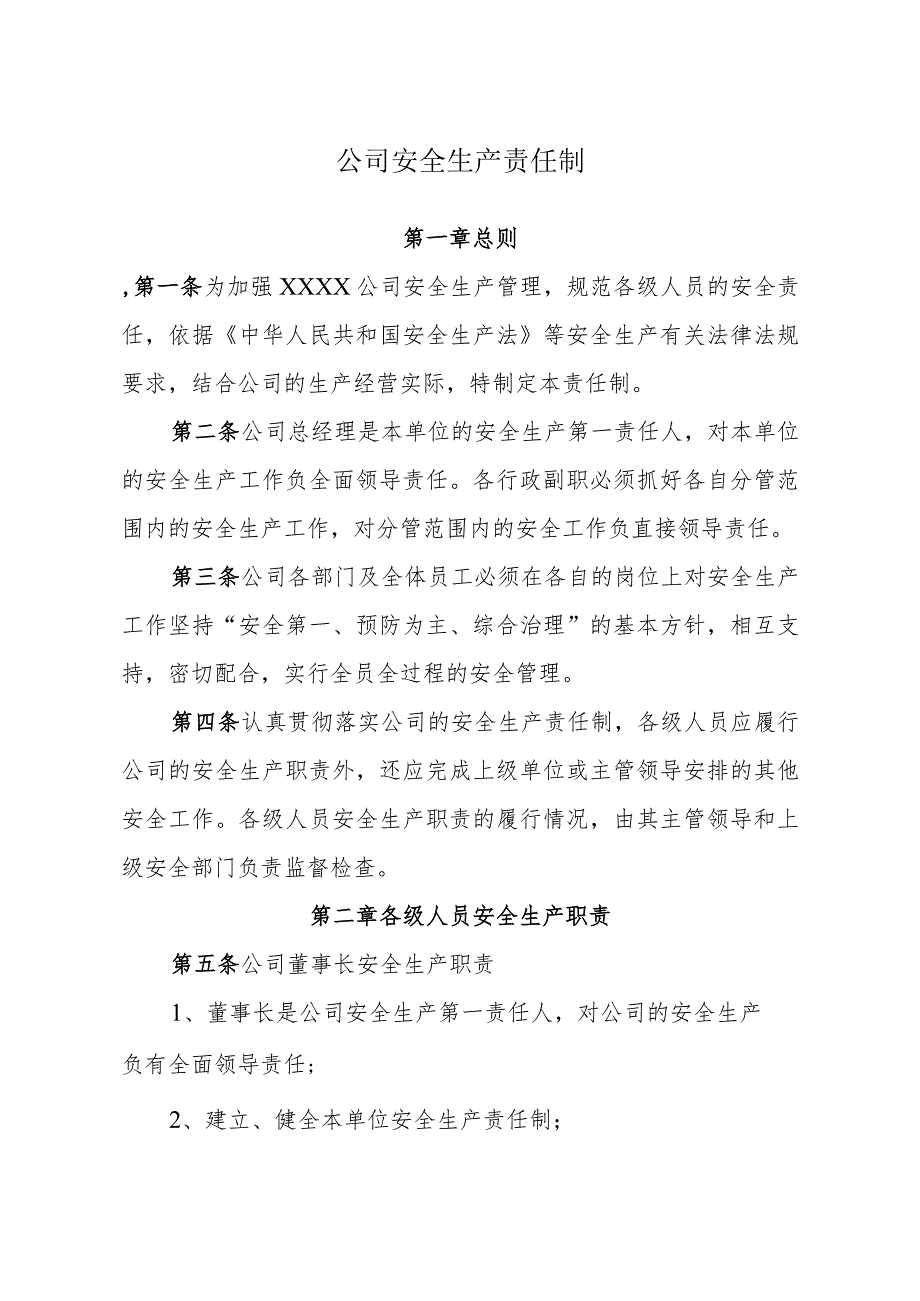 公司安全生产责任制
第一章总则
,第一条为加强 XXXX 公司安全生产管理，规范各级人员的安全责
任，依据《中华人民共和国安全生产法》等安全生产有关法律法规
要求，结合公司的生产经营实际，特制定本责任制。
第二条公司总经理是本单位的安全生产第一责任人，对本单位
的安全生产工作负全面领导责任。各行政副职必须抓好各自分管范
围内的安全生产工作，对分管范围内的安全工作负直接领导责任。
第三条公司各部门及全体员工必须在各自的岗位上对安全生产
工作坚持“安全第一、预防为主、综合治理”的基本方针，相互支
持，密切配合，实行全员全过程的安全管理。
第四条认真贯彻落实公司的安全生产责任制，各级人员应履行
公司的安全生产职责外，还应完成上级单位或主管领导安排的其他
安全工作。各级人员安全生产职责的履行情况，由其主管领导和上
级安全部门负责监督检查。
第二章各级人员安全生产职责
第五条公司董事长安全生产职责
1、董事长是公司安全生产第一责任人，对公司的安全生产
负有全面领导责任；
2、建立、健全本单位安全生产责任制；